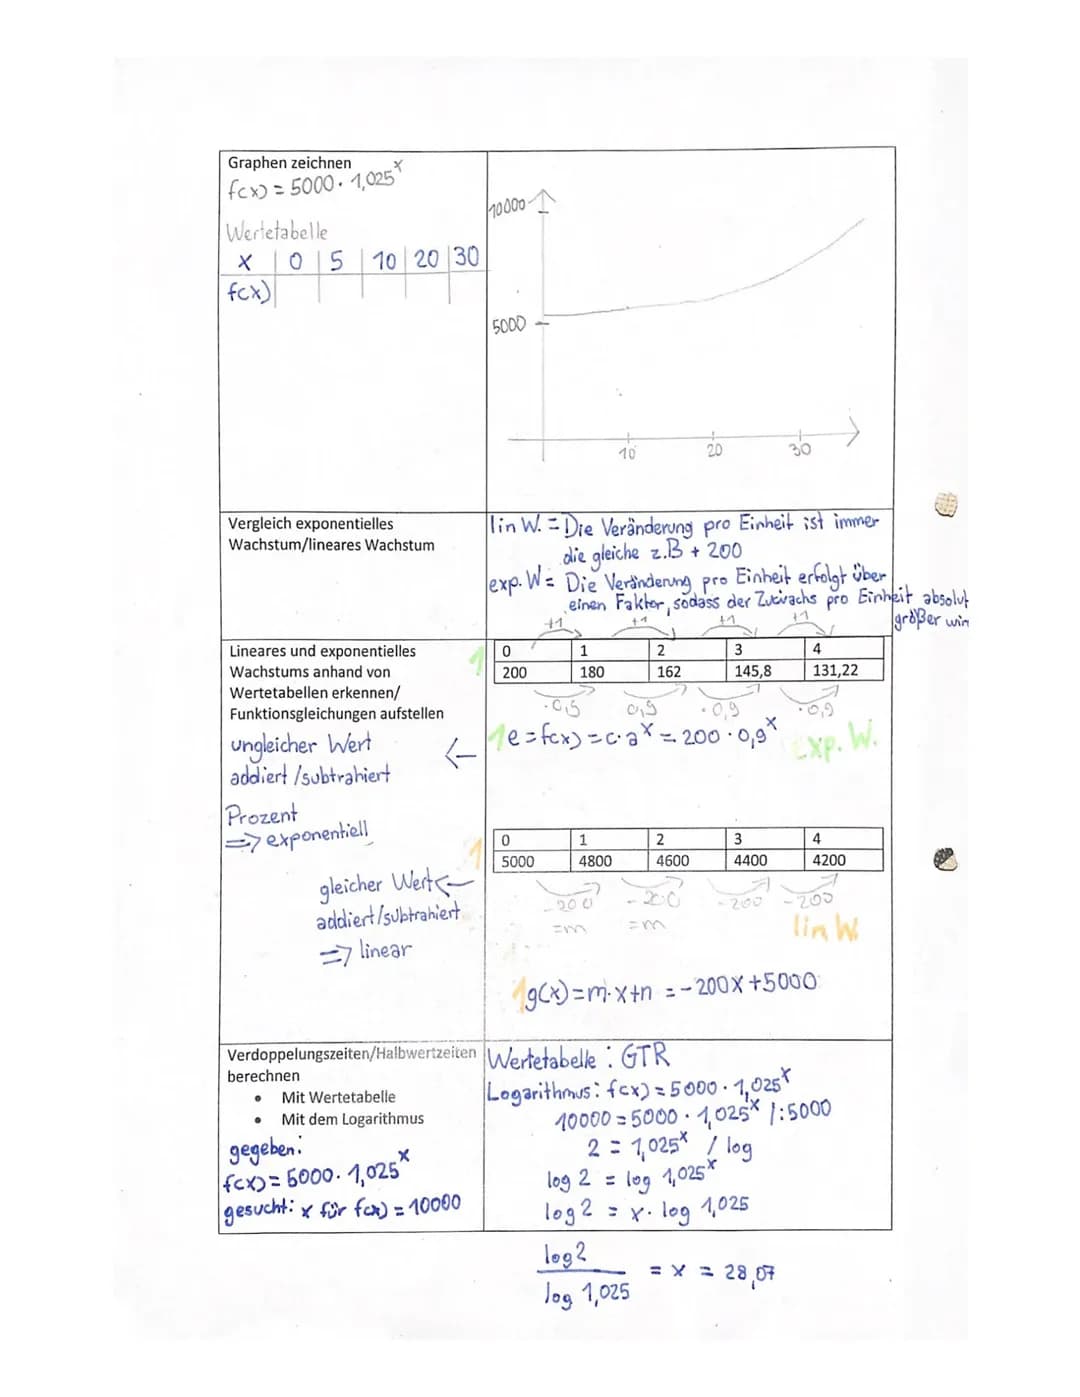 Graphen zeichnen
f(x) = 5000 · 1,025^x
Wertetabelle
x | 0 | 5 | 10 | 20 | 30
f(x)
10000
5000
10 20 30
Vergleich exponentielles
Wachstum/lineares Wachstum
lin W. = Die Veränderung pro Einheit ist immer
die gleiche z.B + 200
exp. W = Die Veränderung pro Einheit erfolgt über
einen Faktor, sodass der Zuwachs pro Einheit absolut
größer wir
+1 +1 +1 +1
Lineares und exponentielles
Wachstums anhand von
Wertetabellen erkennen/
Funktionsgleichungen aufstellen
ungleicher Wert
addiert/subtrahiert
Prozent
=> exponentiell
gleicher Wert <-
addiert/subtrahiert
=> linear
1
0 1 2 3 4
200 180 162 145,8 131,22
·0,9 0,9 ·0,9 ·0,9
<- 1e = f(x) = c·a^x = 200·0,9^x
exp. W.
1
0 1 2 3 4
5000 4800 4600 4400 4200
-200 -200 -200 -200
=m =m
lin W.
1g(x) = m·x+n = -200x+5000
Verdoppelungszeiten/Halbwertzeiten
berechnen
• Mit Wertetabelle
• Mit dem Logarithmus
gegeben:
f(x) = 5000 · 1,025^x
gesucht: x für f(x) = 10000
Wertetabelle : GTR
Logarithmus: f(x) = 5000 · 1,025^x
10000 = 5000 · 1,025^x /:5000
2 = 1,025^x / log
log 2 = log 1,025^x
log 2 = x · log 1,025
log 2
log 1,025 = x = 28,07